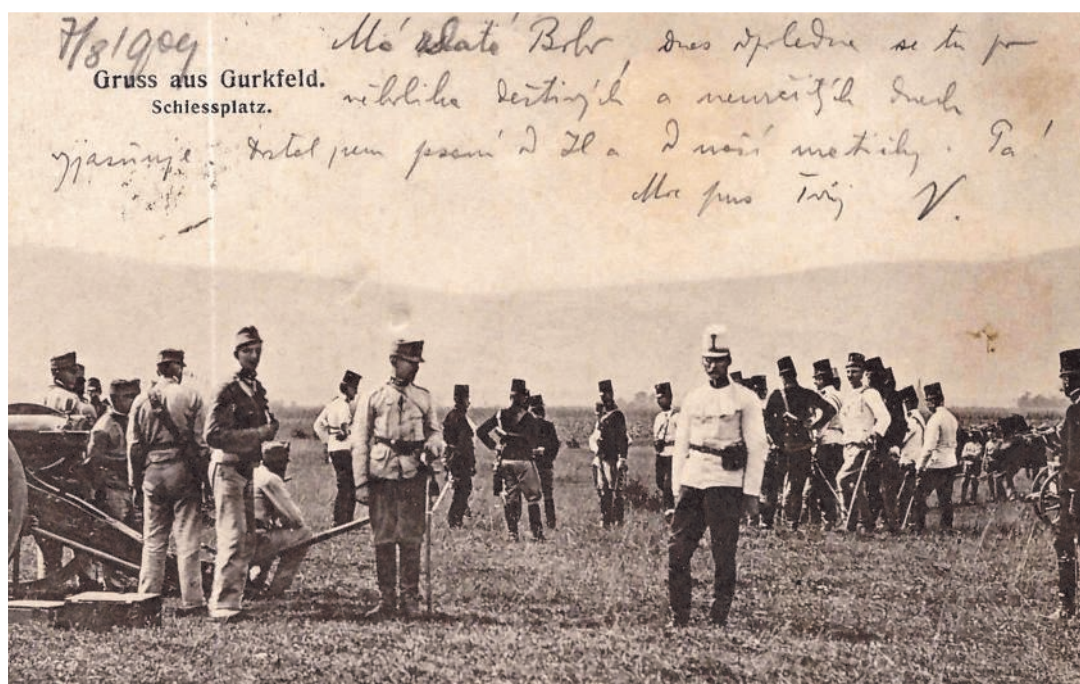 7/8 1909.
Gruss aus Gurkfeld.
Schiessplatz.
Má zlaté Bobo, dnes odpoledne se tu po
několika deštivých a neurčitých dnech
vyjasňuje. Dostal jsem psaní od a od naší
Tvůj V.